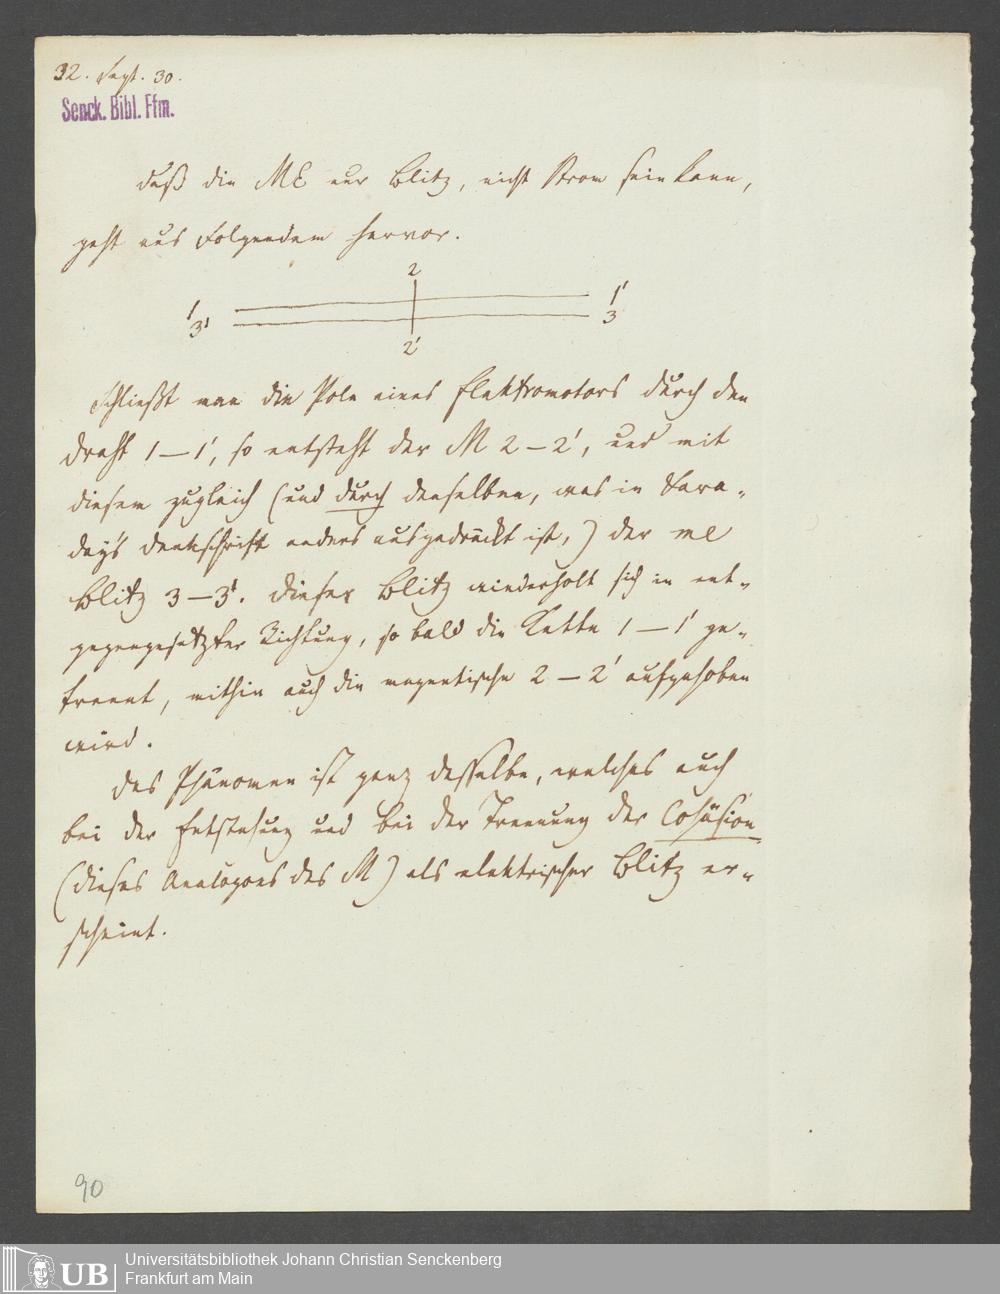 32. Sept. 30.
Senck. Bibl. Ffm.
Daß die ME nur Blitz, nicht Strom sein kann,
geht aus Folgendem hervor.
2
1 1'
3' 3
2'
Schließt man die Pole eines Elektromotors durch den
Draht 1 — 1', so entsteht der M 2 — 2', und mit
diesem zugleich (und durch denselben, was in Fara-
day's Denkschrift anders ausgedrückt ist,) der me
Blitz 3 — 3'. Dieser Blitz wiederholt sich in ent-
gegengesetzter Richtung, so bald die Kette 1 — 1' ge-
trennt, mithin auch die magnetische 2 — 2' aufgehoben
wird.
Das Phänomen ist ganz dasselbe, welches auch
bei der Entstehung und bei der Trennung der Cohäsion
(dieses Analogons des M) als elektrischer Blitz er-
scheint.
90
UB
Universitätsbibliothek Johann Christian Senckenberg
Frankfurt am Main